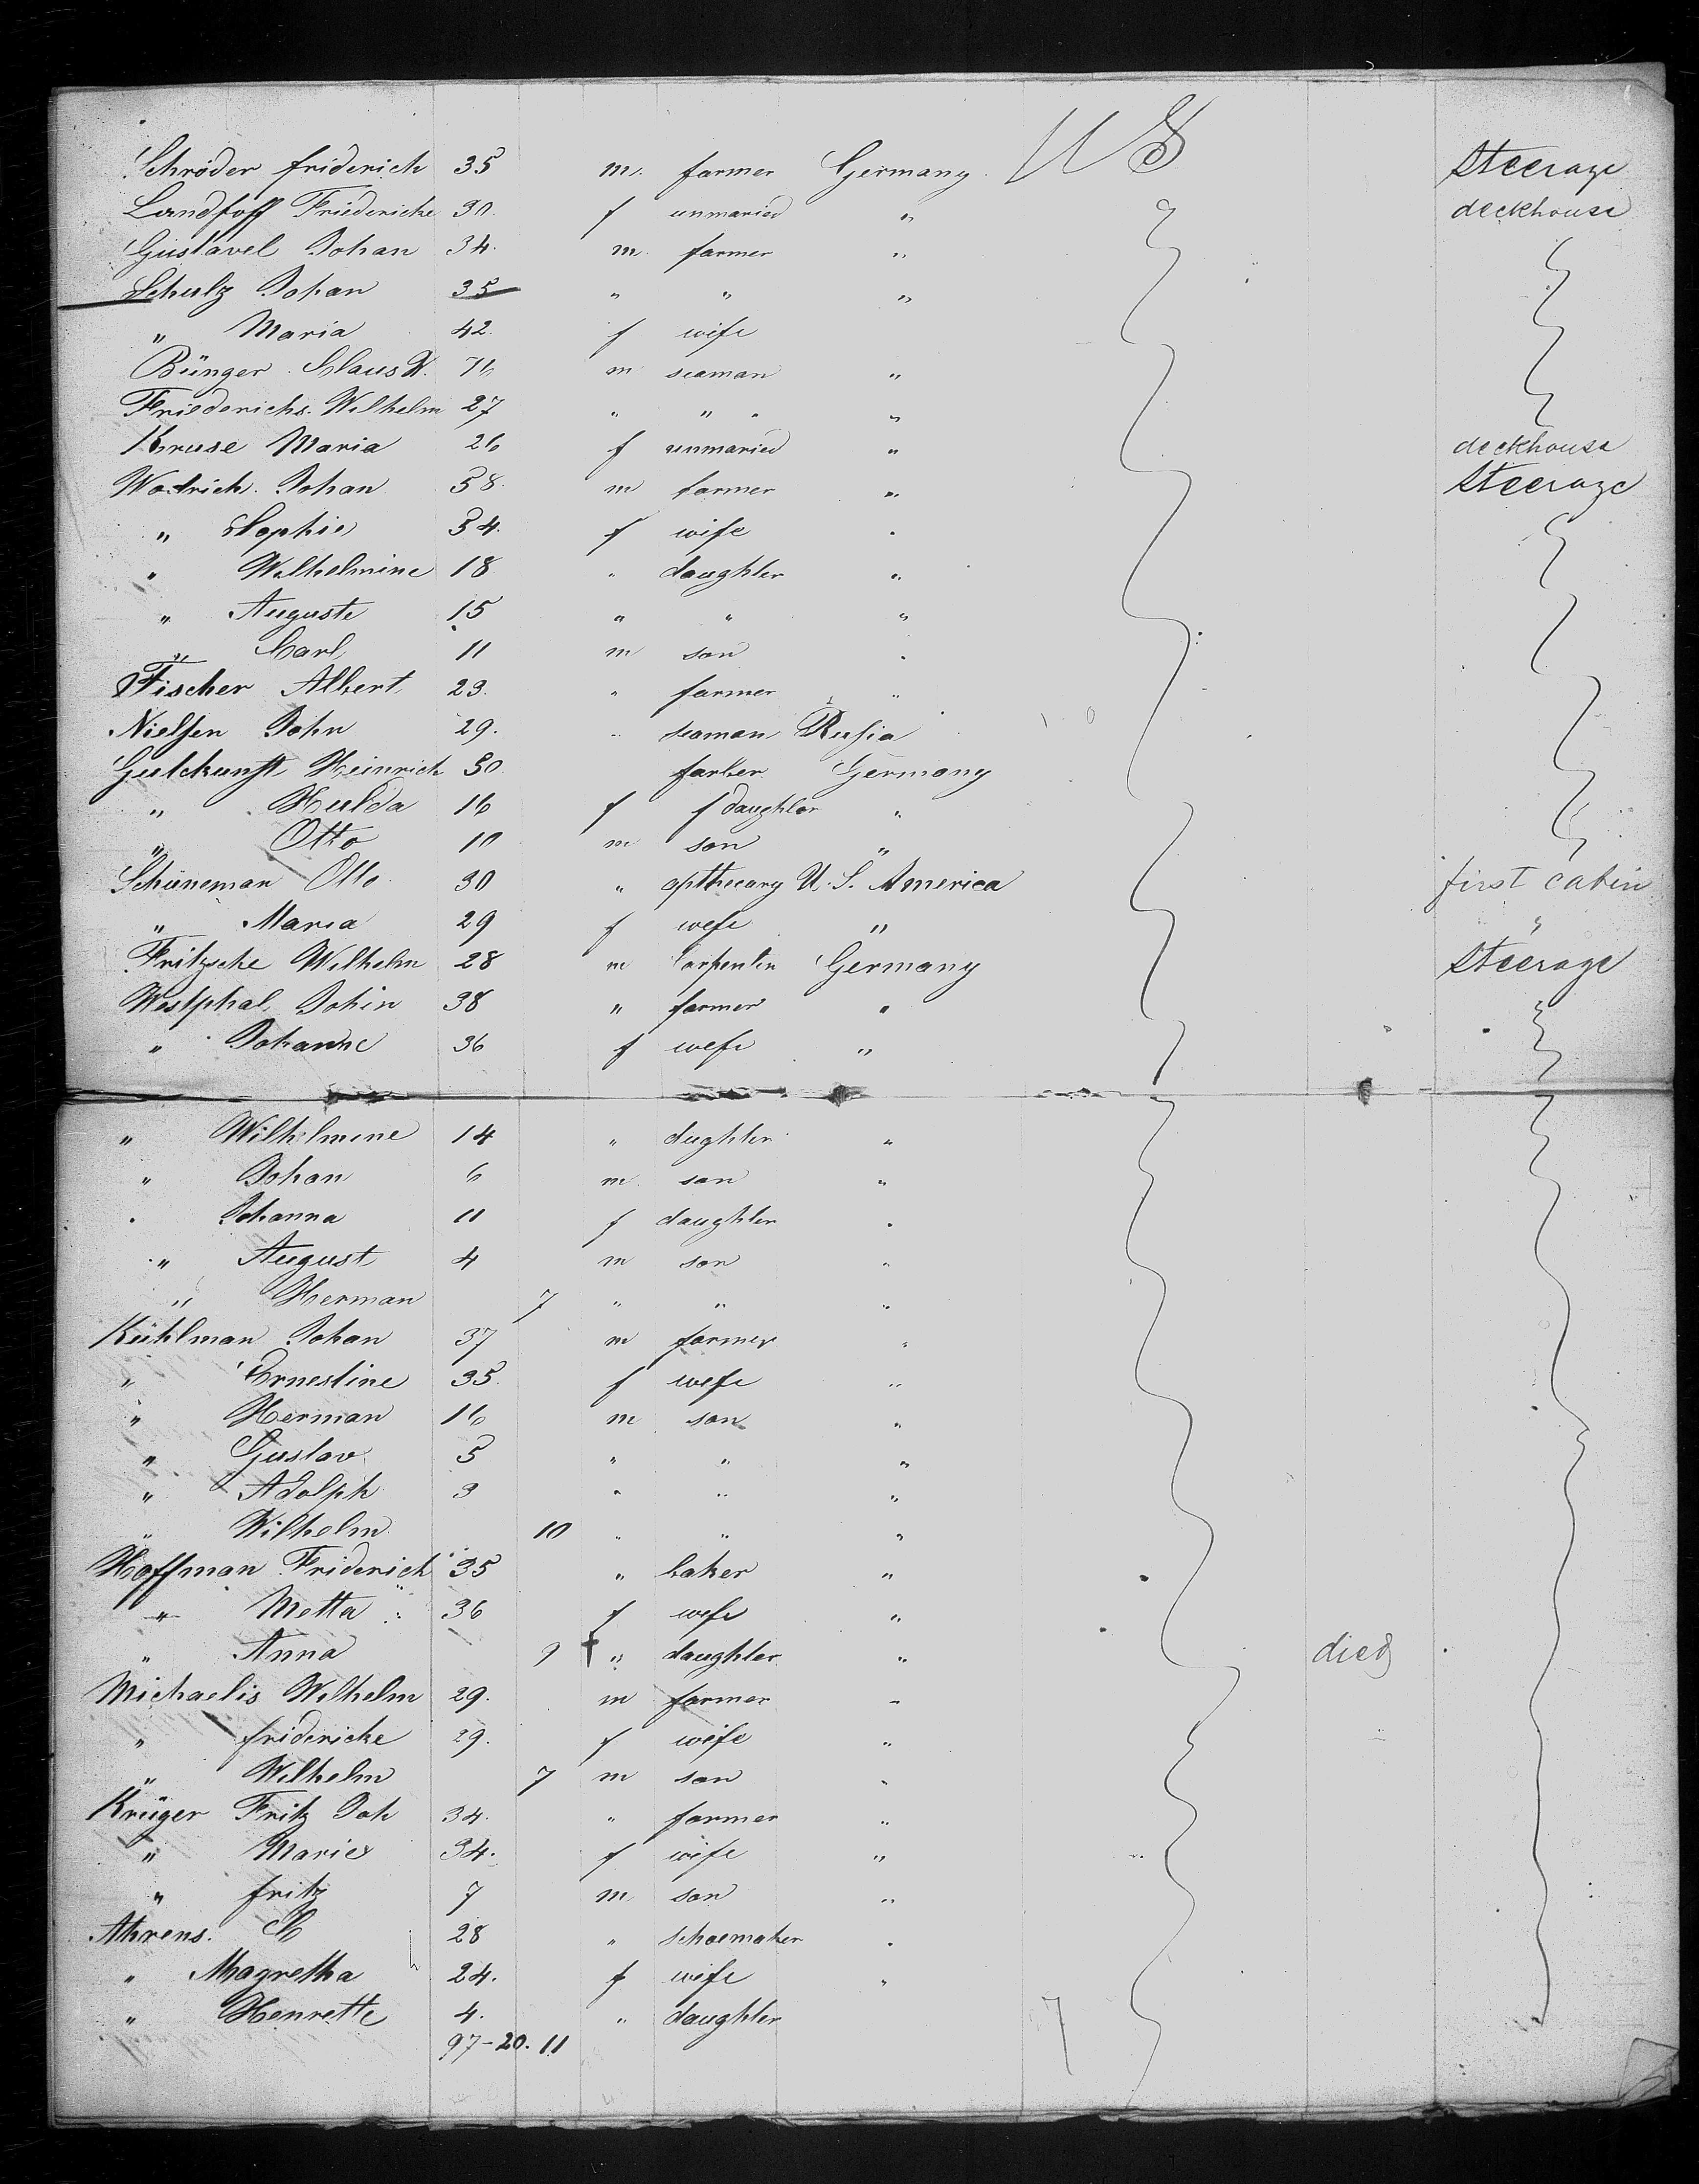 Schröder friderich 35 m. farmer Germany. U S Steerage
Landhoff Friedericke 30. f unmaried " deckhouse
Gustavel Johan 34. m. farmer "
Schulz Johan 35 " " "
" Maria 42. f wife
Bünger Claus H. 76 m seaman "
Friederichs. Wilhelm 27 " " "
Kruse Maria 26 f unmaried " deckhouse
Wodrich. Johan 58. m farmer " Steerage
" Sophie 54. f wife "
" Wilhelmine 18 " daughter "
" Auguste 15 " " "
" Carl 11 m son "
Fischer Albert 23. " farmer "
Nielsen John 29. " seaman Rusia
Heinrich 50 farber Germany
" Hulda 16 f f daughter "
" Otto 10 m son "
Schüneman Otto 30 " apthecary U. S. America first cabin
" Maria 29 f wefe " "
Fritzsche Wilhelm 28 m Carpenter Germany Steerage
Westphal Johin 38 " farmer "
" Johanne 36 f wefe "
" Wilhelmine 14 " dughter "
" Johan 6 m son "
" Johanna 11 f daughter "
" August 4 m son "
" Herman 7 " " "
Kühlman Johan 37 m farmer "
" Ernestine 35. f wefe "
" Herman 16 m son "
" Gustav. 5 " " "
" Adolph 3 " " "
" Wilhelm 10 " " "
Hoffman Friderich 35 " baker "
" Metta 36 f wefe "
" Anna 9 † " daughter " died
Michaelis Wilhelm 29. m farmer "
" fridericke 29. f wife "
" Wilhelm 7 m son "
Krüger Fritz Joh 34. " farmer "
" Marie 34. f wife "
" fritz 7 m son "
Ahrens. C 28 " schoemaker "
" Magretha 24. f wife "
" Henrette 4. " daughter
97-20. 11